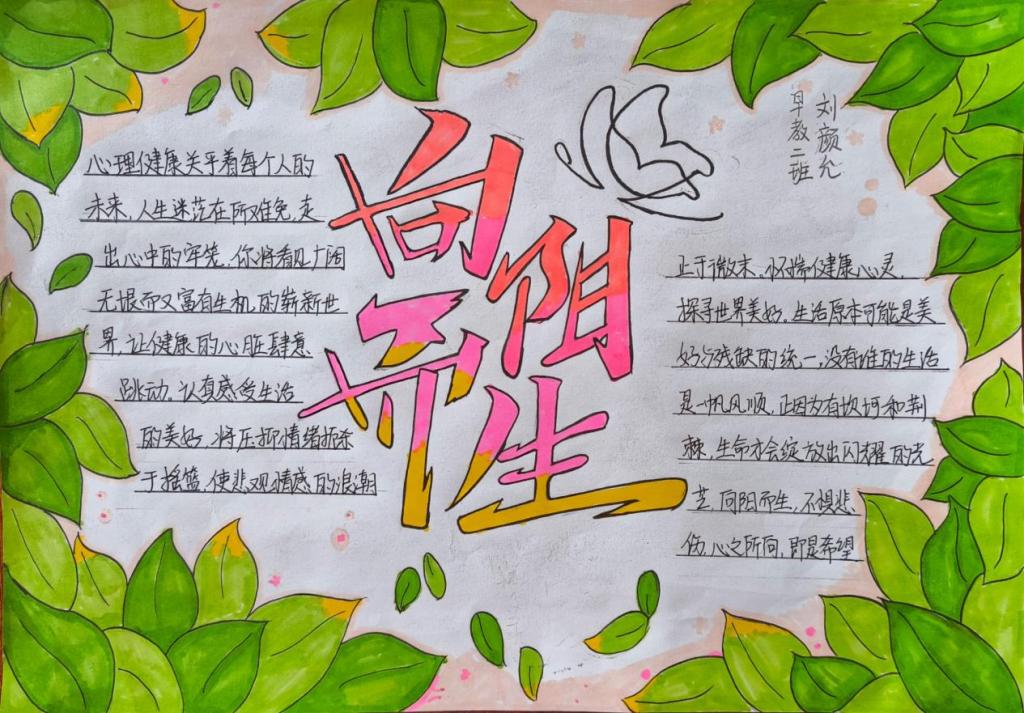 心理健康关乎着每个人的
未来,人生迷茫在所难免,走
出心中的牢笼,你将看见广阔
无垠而又富有生机的崭新世
界,让健康的心脏肆意
跳动,认真感受生活
的美好,将压抑情绪扼杀
于摇篮,使悲观情感的浪潮
向阳
而生
刘颜允
早教二班
止于微末,怀揣健康心灵,
探寻世界美好。生活原本可能是美
好与残缺的统一,没有谁的生活
是一帆风顺,正因为有坎坷和荆
棘,生命才会绽放出闪耀的光
芒,向阳而生,不惧悲
伤,心之所向,即是希望